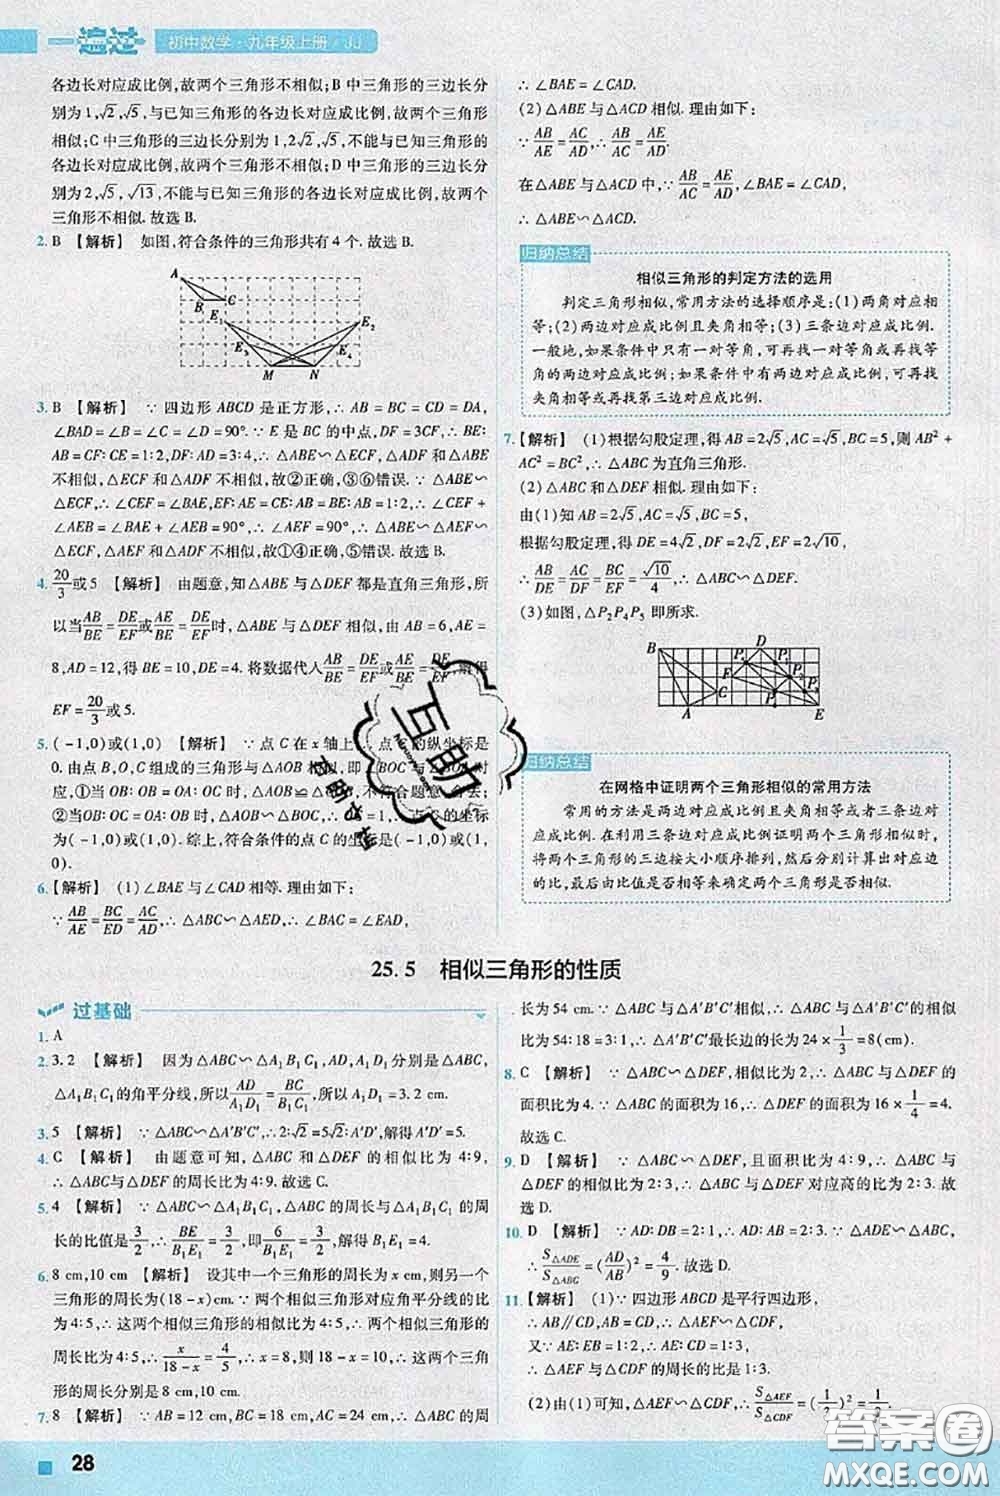 一遍过 初中数学·九年级上册 / JJ
各边长对应成比例,故两个三角形不相似;B 中三角形的三边长分
别为 1,√2,√5,与已知三角形的各边长对应成比例,故两个三角形
相似;C 中三角形的三边长分别为 1,2√2,√5,不能与已知三角形的
各边长对应成比例,故两个三角形不相似;D 中三角形的三边长分
别为 2,√5,√13,不能与已知三角形的各边长对应成比例,故两个
三角形不相似.故选 B.
2. B 【解析】 如图,符合条件的三角形共有 4 个.故选 B.
A
B C
E₁ E₂
E₃ E₄
M N
3. B 【解析】 ∵ 四边形 ABCD 是正方形,∴ AB = BC = CD = DA,
∠BAD = ∠B = ∠C = ∠D = 90°. ∵ E 是 BC 的中点,DF = 3CF,∴ BE:
AB = CF:CE = 1:2,DF:AD = 3:4,∴ △ABE∽△ECF,△ADF 和△ABE
不相似,△ECF 和△ADF 不相似,故②正确,③⑥错误. ∵ △ABE∽
△ECF,∴ ∠CEF = ∠BAE,EF:AE = CE:AB = BE:AB = 1:2,∴ ∠CEF +
∠AEB = ∠BAE + ∠AEB = 90°,∴ ∠AEF = 90°,∴ △ABE∽△AEF∽
△ECF,△AEF 和△ADF 不相似,故①④正确,⑤错误.故选 B.
4. 20/3 或 5 【解析】 由题意,知△ABE 与△DEF 都是直角三角形,所
以当 AB/BE = DE/EF 或 AE/BE = DE/EF 时,△ABE 与△DEF 相似,由 AB = 6,AE =
8,AD = 12,得 BE = 10,DE = 4. 将数据代入 AB/BE = DE/EF 或 AE/BE = DE/EF,解得
EF = 20/3 或 5.
5. ( - 1,0)或(1,0) 【解析】 ∵ 点 C 在 x 轴上,∴ 点 C 的纵坐标是
0. 由点 B,O,C 组成的三角形与△AOB 相似,即△BOC 与△AOB 相
应,①当 OB:OB = OA:OC 时,△AOB≌ 不符合题意 舍去;
②当 OB:OC = OA:OB 时,△AOB∽△BOC,∴ = 1,∴ 点 C 的坐标
为( - 1,0)或(1,0).综上,符合条件的点 C 的坐标是( - 1,0)或(1,
0).
6. 【解析】 (1)∠BAE 与∠CAD 相等.理由如下:
∵ AB/AE = BC/ED = AC/AD,∴ △ABC∽△AED,∴ ∠BAC = ∠EAD,
∴ ∠BAE = ∠CAD.
(2)△ABE 与△ACD 相似.理由如下:
∵ AB/AE = AC/AD,∴ AB/AC = AE/AD.
在△ABE 与△ACD 中,∵ AB/AC = AE/AD,∠BAE = ∠CAD,
∴ △ABE∽△ACD.
归纳总结
相似三角形的判定方法的选用
判定三角形相似,常用方法的选择顺序是:(1)两角对应相
等;(2)两边对应成比例且夹角相等;(3)三条边对应成比例.
一般地,如果条件中只有一对等角,可再找一对等角或再找等角
的两边对应成比例;如果条件中有两边对应成比例,可再找
夹角相等或再找第三边对应成比例.
7. 【解析】 (1)根据勾股定理,得 AB = 2√5,AC = √5,BC = 5,则 AB² +
AC² = BC²,∴ △ABC 为直角三角形.
(2)△ABC 和△DEF 相似.理由如下:
由(1)知 AB = 2√5,AC = √5,BC = 5,
根据勾股定理,得 DE = 4√2,DF = 2√2,EF = 2√10,
∴ AB/DE = AC/DF = BC/EF = √10/4,∴ △ABC∽△DEF.
(3)如图,△P₂P₄P₅ 即所求.
B D
P₁ P₄
F P₂
C P₅ P₃
A E
归纳总结
在网格中证明两个三角形相似的常用方法
常用的方法是两边对应成比例且夹角相等或者三条边对
应成比例.在利用三条边对应成比例证明两个三角形相似时,
将两个三角形的三边按大小顺序排列,然后分别计算出对应边
的比,最后由比值是否相等来确定两个三角形是否相似.
互助
25.5 相似三角形的性质
过基础
1. A
2. 3.2 【解析】 因为△ABC∽△A₁B₁C₁,AD,A₁D₁ 分别是△ABC,
△A₁B₁C₁ 的角平分线,所以 AD/A₁D₁ = BC/B₁C₁,所以 A₁D₁ = 3.2 cm.
3. 5 【解析】 ∵ △ABC∽△A′B′C′,∴ 2:√2 = 5√2:A′D′,解得 A′D′ = 5.
4. C 【解析】 由题意可知,△ABC 和△DEF 的相似比为 4:9,
∴ △ABC 与△DEF 的周长比为 4:9.故选 C.
5. 4 【解析】 ∵ △ABC∽△A₁B₁C₁,△ABC 的周长与△A₁B₁C₁ 的周
长的比值是 3/2,∴ BE/B₁E₁ = 3/2,即 6/B₁E₁ = 3/2,解得 B₁E₁ = 4.
6. 8 cm,10 cm 【解析】 设其中一个三角形的周长为 x cm,则另一个
三角形的周长为(18 - x)cm. ∵ 两个相似三角形对应角平分线的比
为 4:5,∴ 这两个相似三角形的相似比为 4:5,∴ 两个相似三角形的
周长比为 4:5,∴ x/(18 - x) = 4/5,∴ x = 8,18 - x = 10,∴ 这两个三角
形的周长分别是 8 cm,10 cm.
7. 8 【解析】 ∵ AB = 12 cm,BC = 18 cm,AC = 24 cm,∴ △ABC 的周
长为 54 cm. ∵ △ABC 与△A′B′C′相似,∴ △ABC 与△A′B′C′的相似
比为 54:18 = 3:1,∴ △A′B′C′最长边的长为 24 × 1/3 = 8(cm).
8. C 【解析】 ∵ △ABC∽△DEF,相似比为 2,∴ △ABC 与△DEF 的
面积比为 4. ∵ △ABC 的面积为 16,∴ △DEF 的面积为 16 × 1/4 = 4.
故选 C.
9. D 【解析】 ∵ △ABC∽△DEF,且面积比为 4:9,∴ △ABC 与
△DEF 的相似比为 2:3,∴ △ABC 与△DEF 对应高的比为 2:3.故
选 D.
10. D 【解析】 ∵ AD:DB = 2:1,∴ AD:AB = 2:3. ∵ △ADE∽△ABC,
∴ S△ADE/S△ABC = (AD/AB)² = 4/9.故选 D.
11. 【解析】 (1)∵ 四边形 ABCD 是平行四边形,
∴ AB∥CD,AB = CD,∴ △AEF∽△CDF,
又∵ AE:EB = 1:2,∴ AE:CD = 1:3,
∴ △AEF 与△CDF 的周长的比是 1:3.
(2)由(1)可知,△AEF∽△CDF,
28
答案圈
MXQE.COM